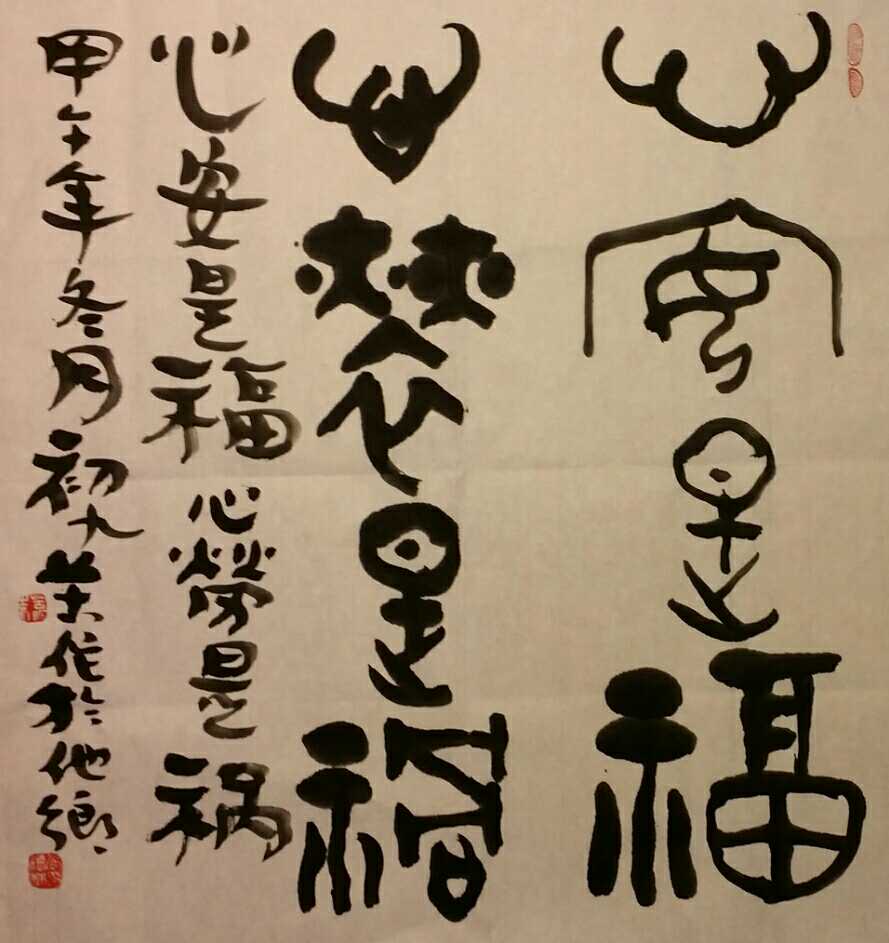 心安是福
心勞是禍
心安是福 心勞是祸
甲午年冬月初九荣作於他鄉